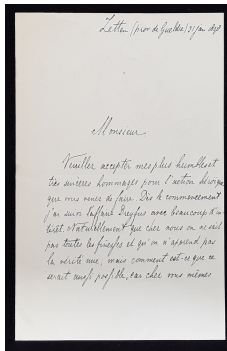 Zetten (prov. de Gueldre) 31 Jan 1898
Monsieur
Veuillez accepter mes plus humbles et
très sincères hommages pour l'action héroïque
que vous venez de faire. Dès le commencement
j'ai suivi l'affaire Dreyfus avec beaucoup d'in
térêt. Naturellement que chez nous on ne sait
pas toutes les finesses et qu'on n'apprend pas
la vérité nue, mais comment est-ce que ce
serait aussi possible, car chez vous mêmes